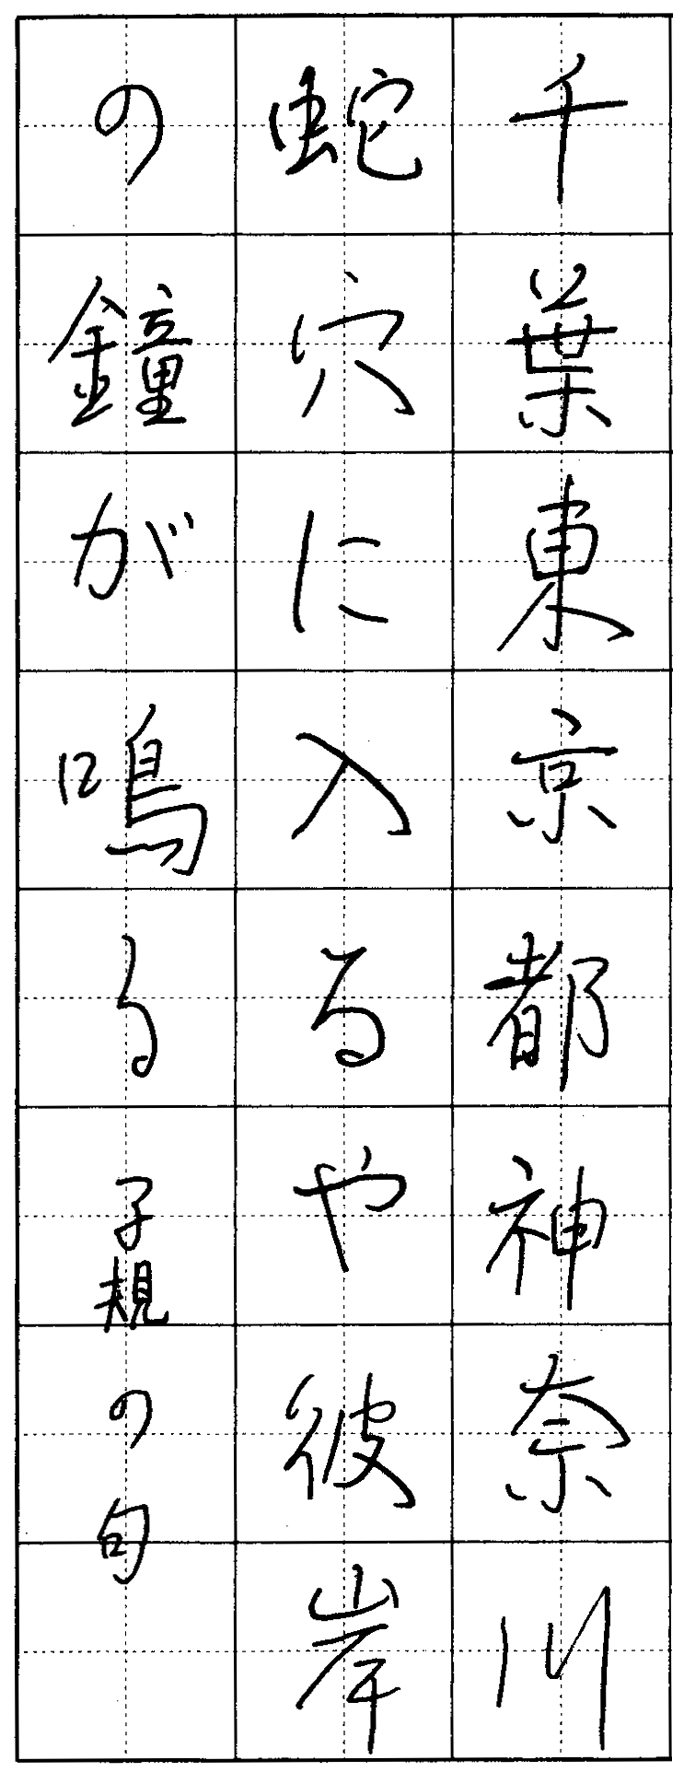 千葉東京都神奈川
蛇穴に入るや彼岸
の鐘が鳴る 子規の句